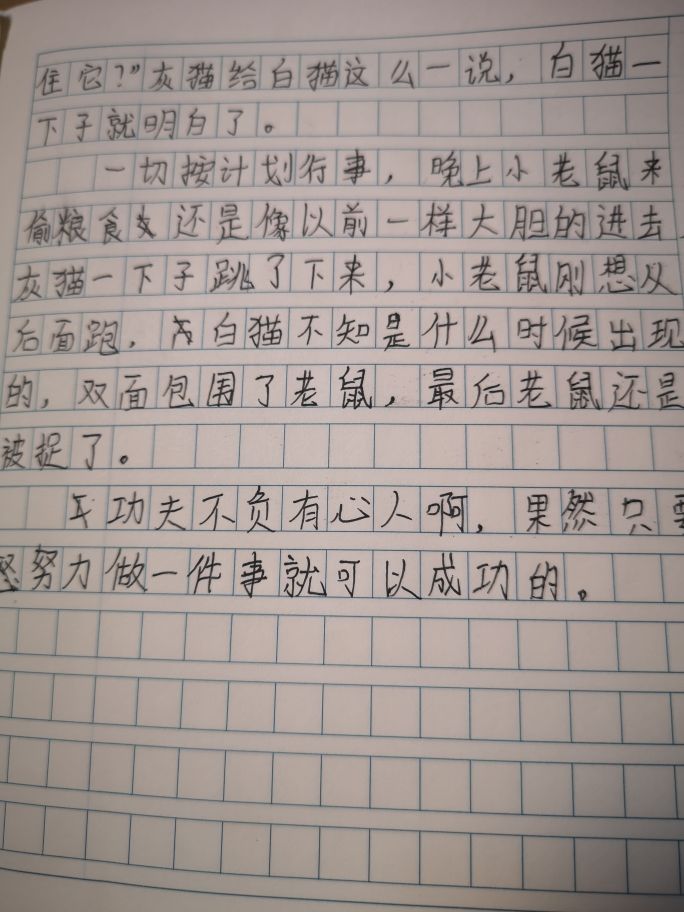 住它?”灰猫给白猫这么一说，白猫一
下子就明白了。
一切按计划行事，晚上小老鼠来
偷粮食还是像以前一样大胆的进去
灰猫一下子跳了下来，小老鼠刚想从
后面跑，白猫不知是什么时候出现
的，双面包围了老鼠，最后老鼠还是
被捉了。
功夫不负有心人啊，果然只要
努力做一件事就可以成功的。